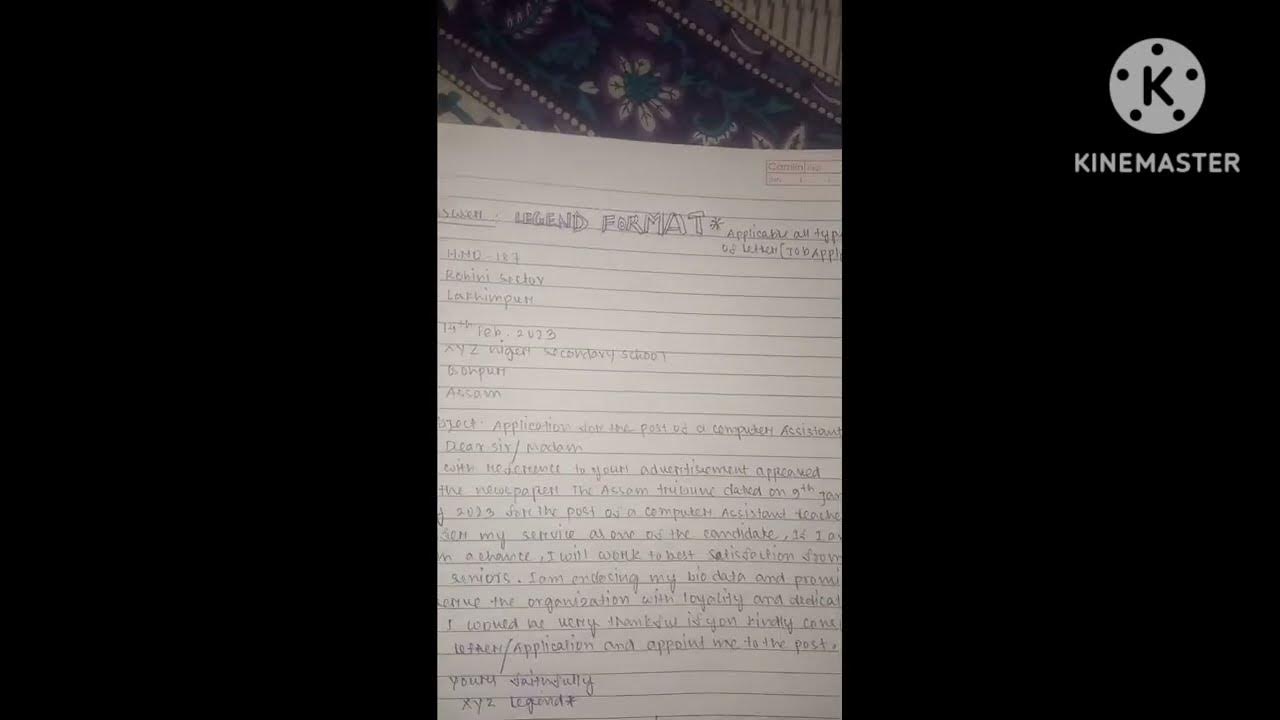 K
KINEMASTER
LEGEND FORMAT*
Applicable all typ
of letter (Job Appli
H.NO - 187
Rohini Sector
Lakhimpur
14th Feb. 2023
XYZ Higer secondary school
Gohpur
Assam
bject: Application for the post of a computer Assistant
Dear Sir/Madam
with reference to your advertisement appeared
the newspaper The Assam tribune dated on 9th Jan
f 2023 for the post of a computer Assistant teache
fer my service as one of the candidate, If I a
n a chance, I will work to best satisfaction from
seniors. I am enclosing my bio data and promi
serve the organization with loyality and dedicat
I would be very thankful if you kindly cons
letter/Application and appoint me to the post.
Yours faithfully
XYZ Legend*